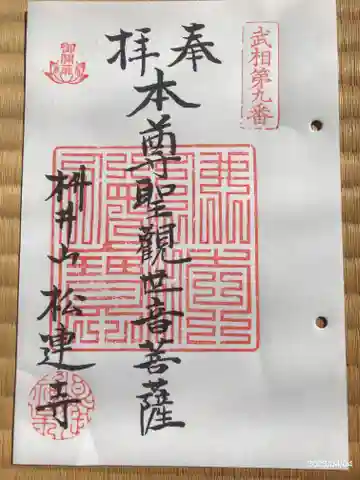 武相第九番
奉拝
本尊聖観世音菩薩
桝井山松連寺
御開帳
2025/04/04